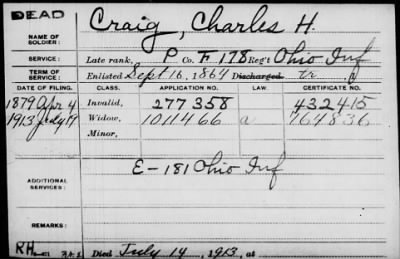 DEAD
NAME OF SOLDIER: Craig, Charles H.
SERVICE: Late rank, P Co. F 178 Reg't Ohio Inf
TERM OF SERVICE: Enlisted Sept 16, 1864 Discharged tr
DATE OF FILING. CLASS. APPLICATION NO. LAW. CERTIFICATE NO.
1879 Apr 4 Invalid, 277358 432415
1913 July 19 Widow, 1011466 a 764836
Minor,
ADDITIONAL SERVICES: E-181 Ohio Inf
REMARKS:
RH Died July 14, 1913, at